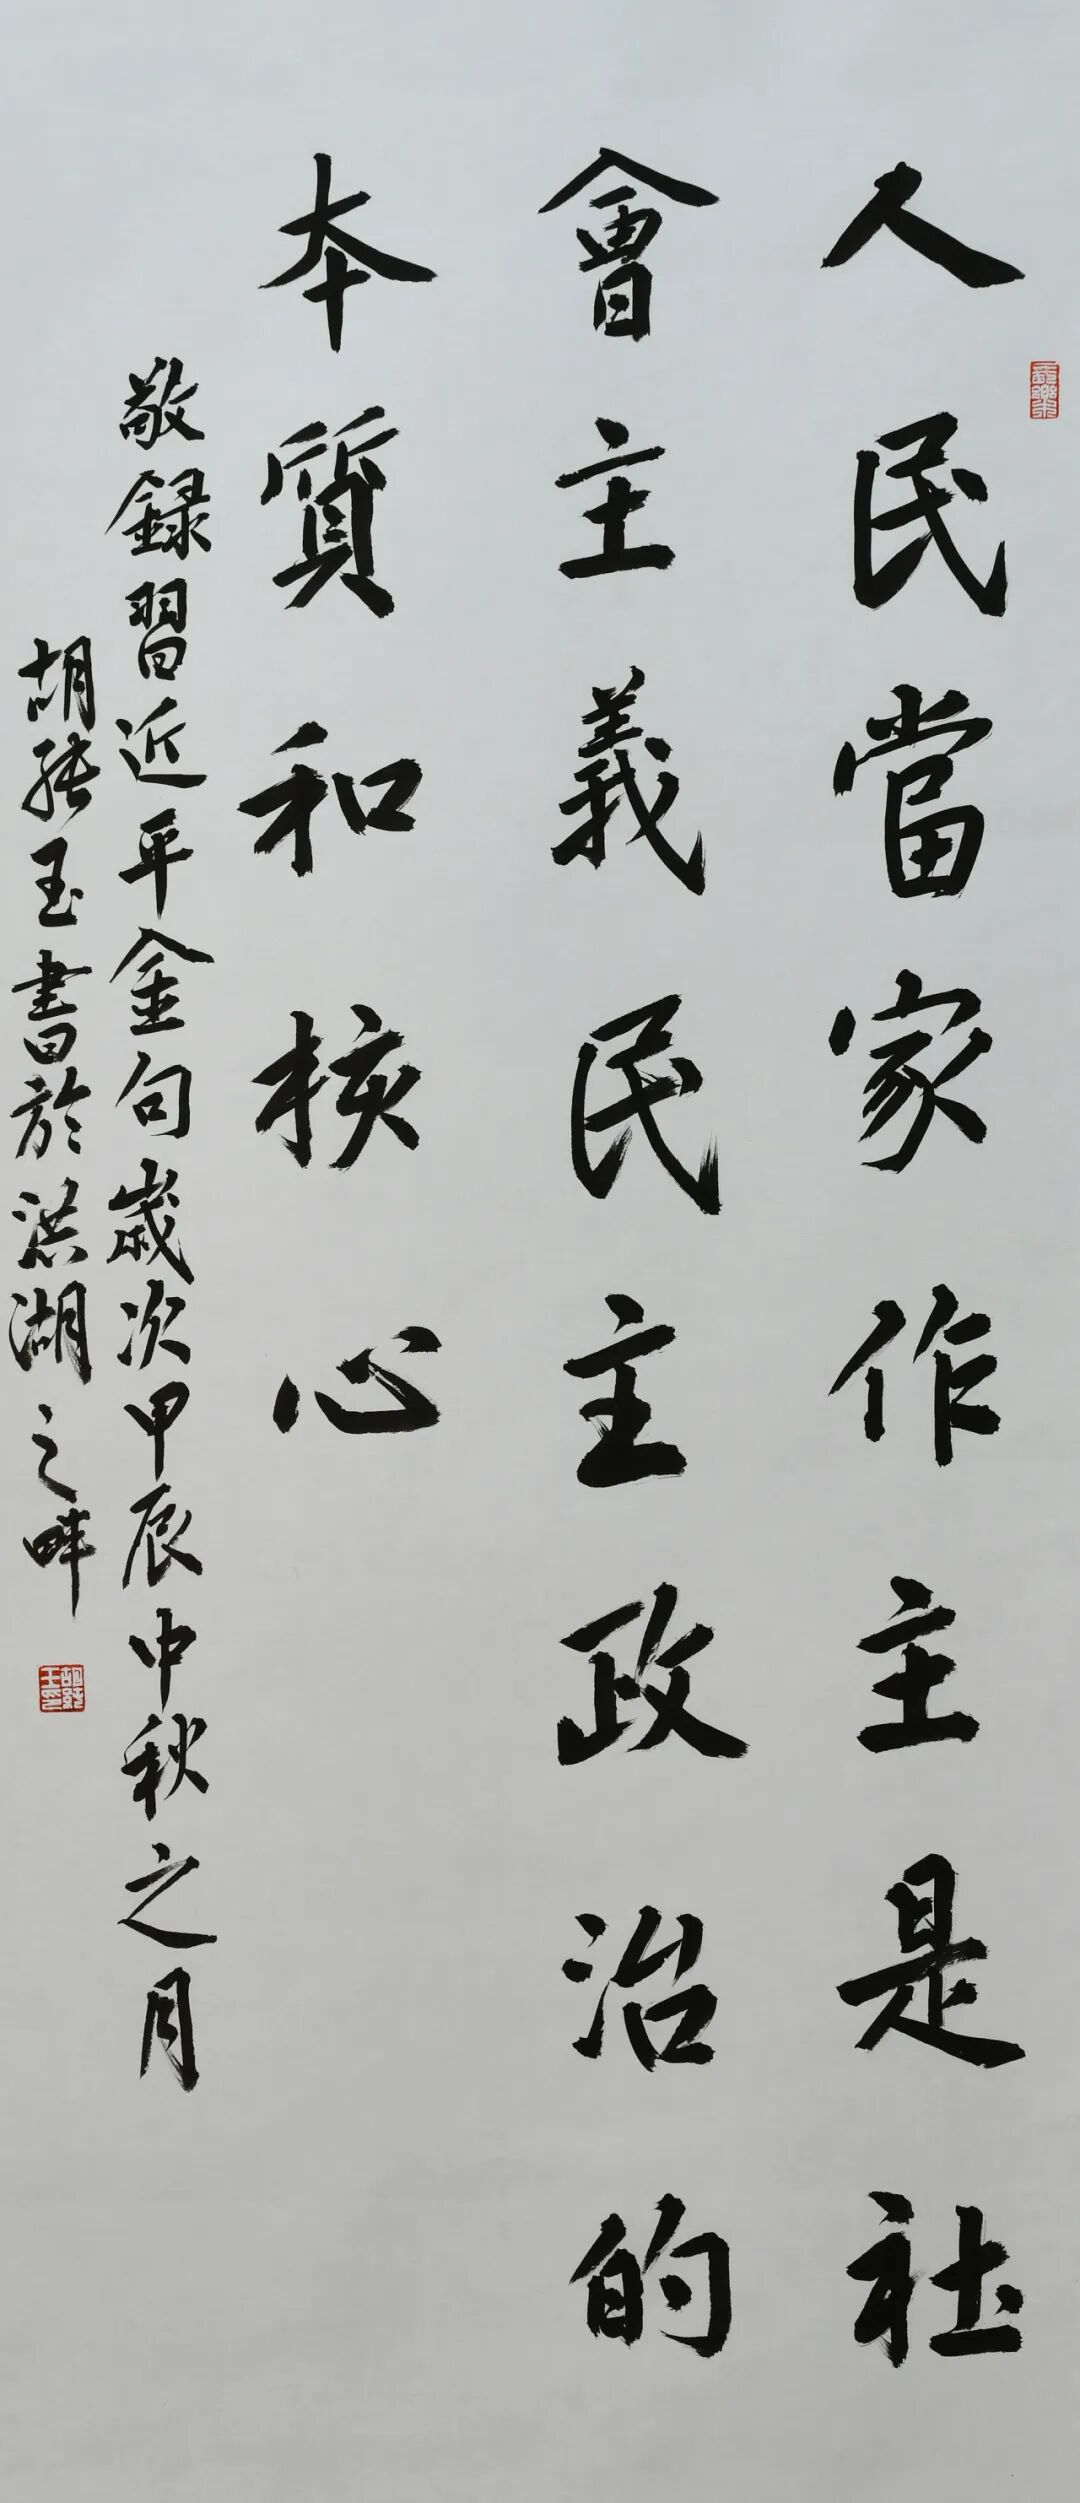 人民當家作主是社
會主義民主政治的
本質和核心
敬録習近平金句歲次甲辰中秋之月
胡經玉書於洪湖之畔